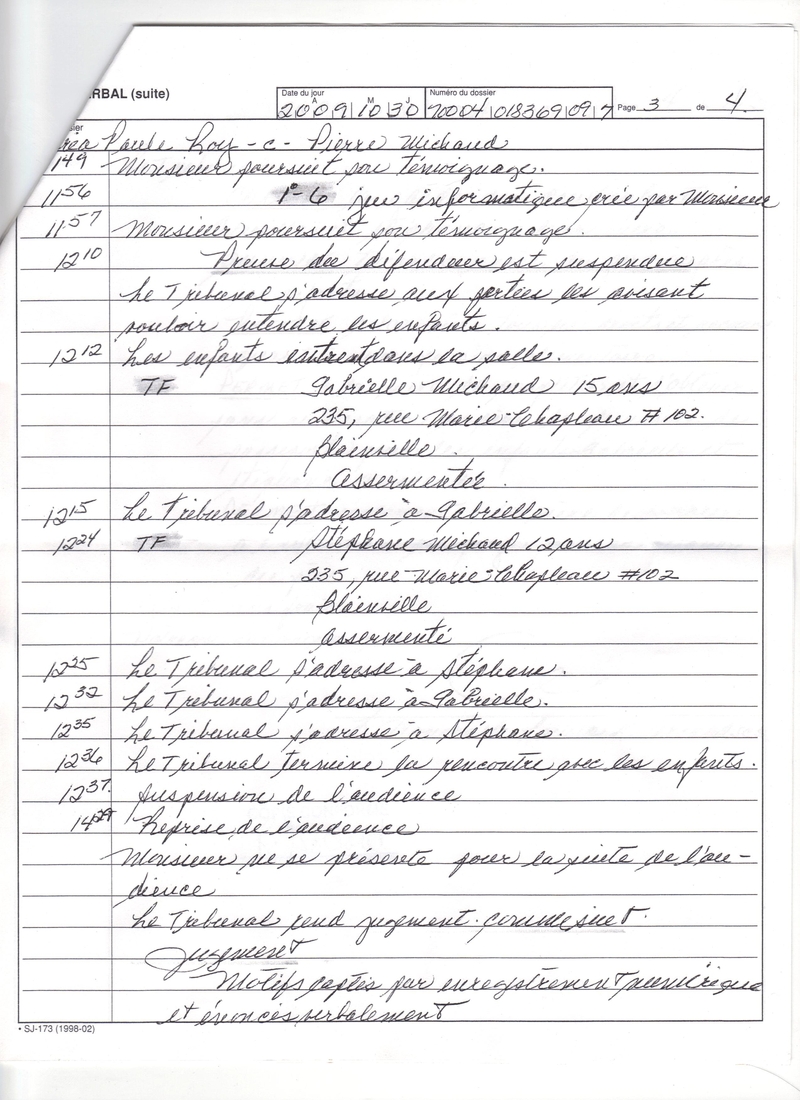 ERBAL (suite)
Date du jour
A M J
2009 10 30
Numéro du dossier
70004 018369 097
Page 3 de 4
Paule Roy - c - Pierre Michaud
1149 Monsieur poursuit son témoignage.
1156 P-6 jeu informatique crée par Monsieur
1157 Monsieur poursuit son témoignage.
1210 Preuve du défendeur est suspendue
Le Tribunal s'adresse aux parties les avisant
vouloir entendre les enfants.
1212 Les enfants entrent dans la salle.
TF Gabrielle Michaud 15 ans
235, rue Marie-Chapleau # 102.
Blainville.
Assermentée.
1215 Le Tribunal s'adresse à Gabrielle.
1224 TF Stéphane Michaud 12 ans
235, rue Marie-Chapleau #102
Blainville
Assermenté
1225 Le Tribunal s'adresse à Stéphane.
1232 Le Tribunal s'adresse à Gabrielle.
1235 Le Tribunal s'adresse à Stéphane.
1236 Le Tribunal termine la rencontre avec les enfants.
1237 Suspension de l'audience
1429 Reprise de l'audience
Monsieur ne se présente pour la suite de l'au-
dience
Le Tribunal rend jugement comme suit.
Jugement
Motifs captés par enregistrement numérique
et énoncés verbalement
• SJ-173 (1998-02)